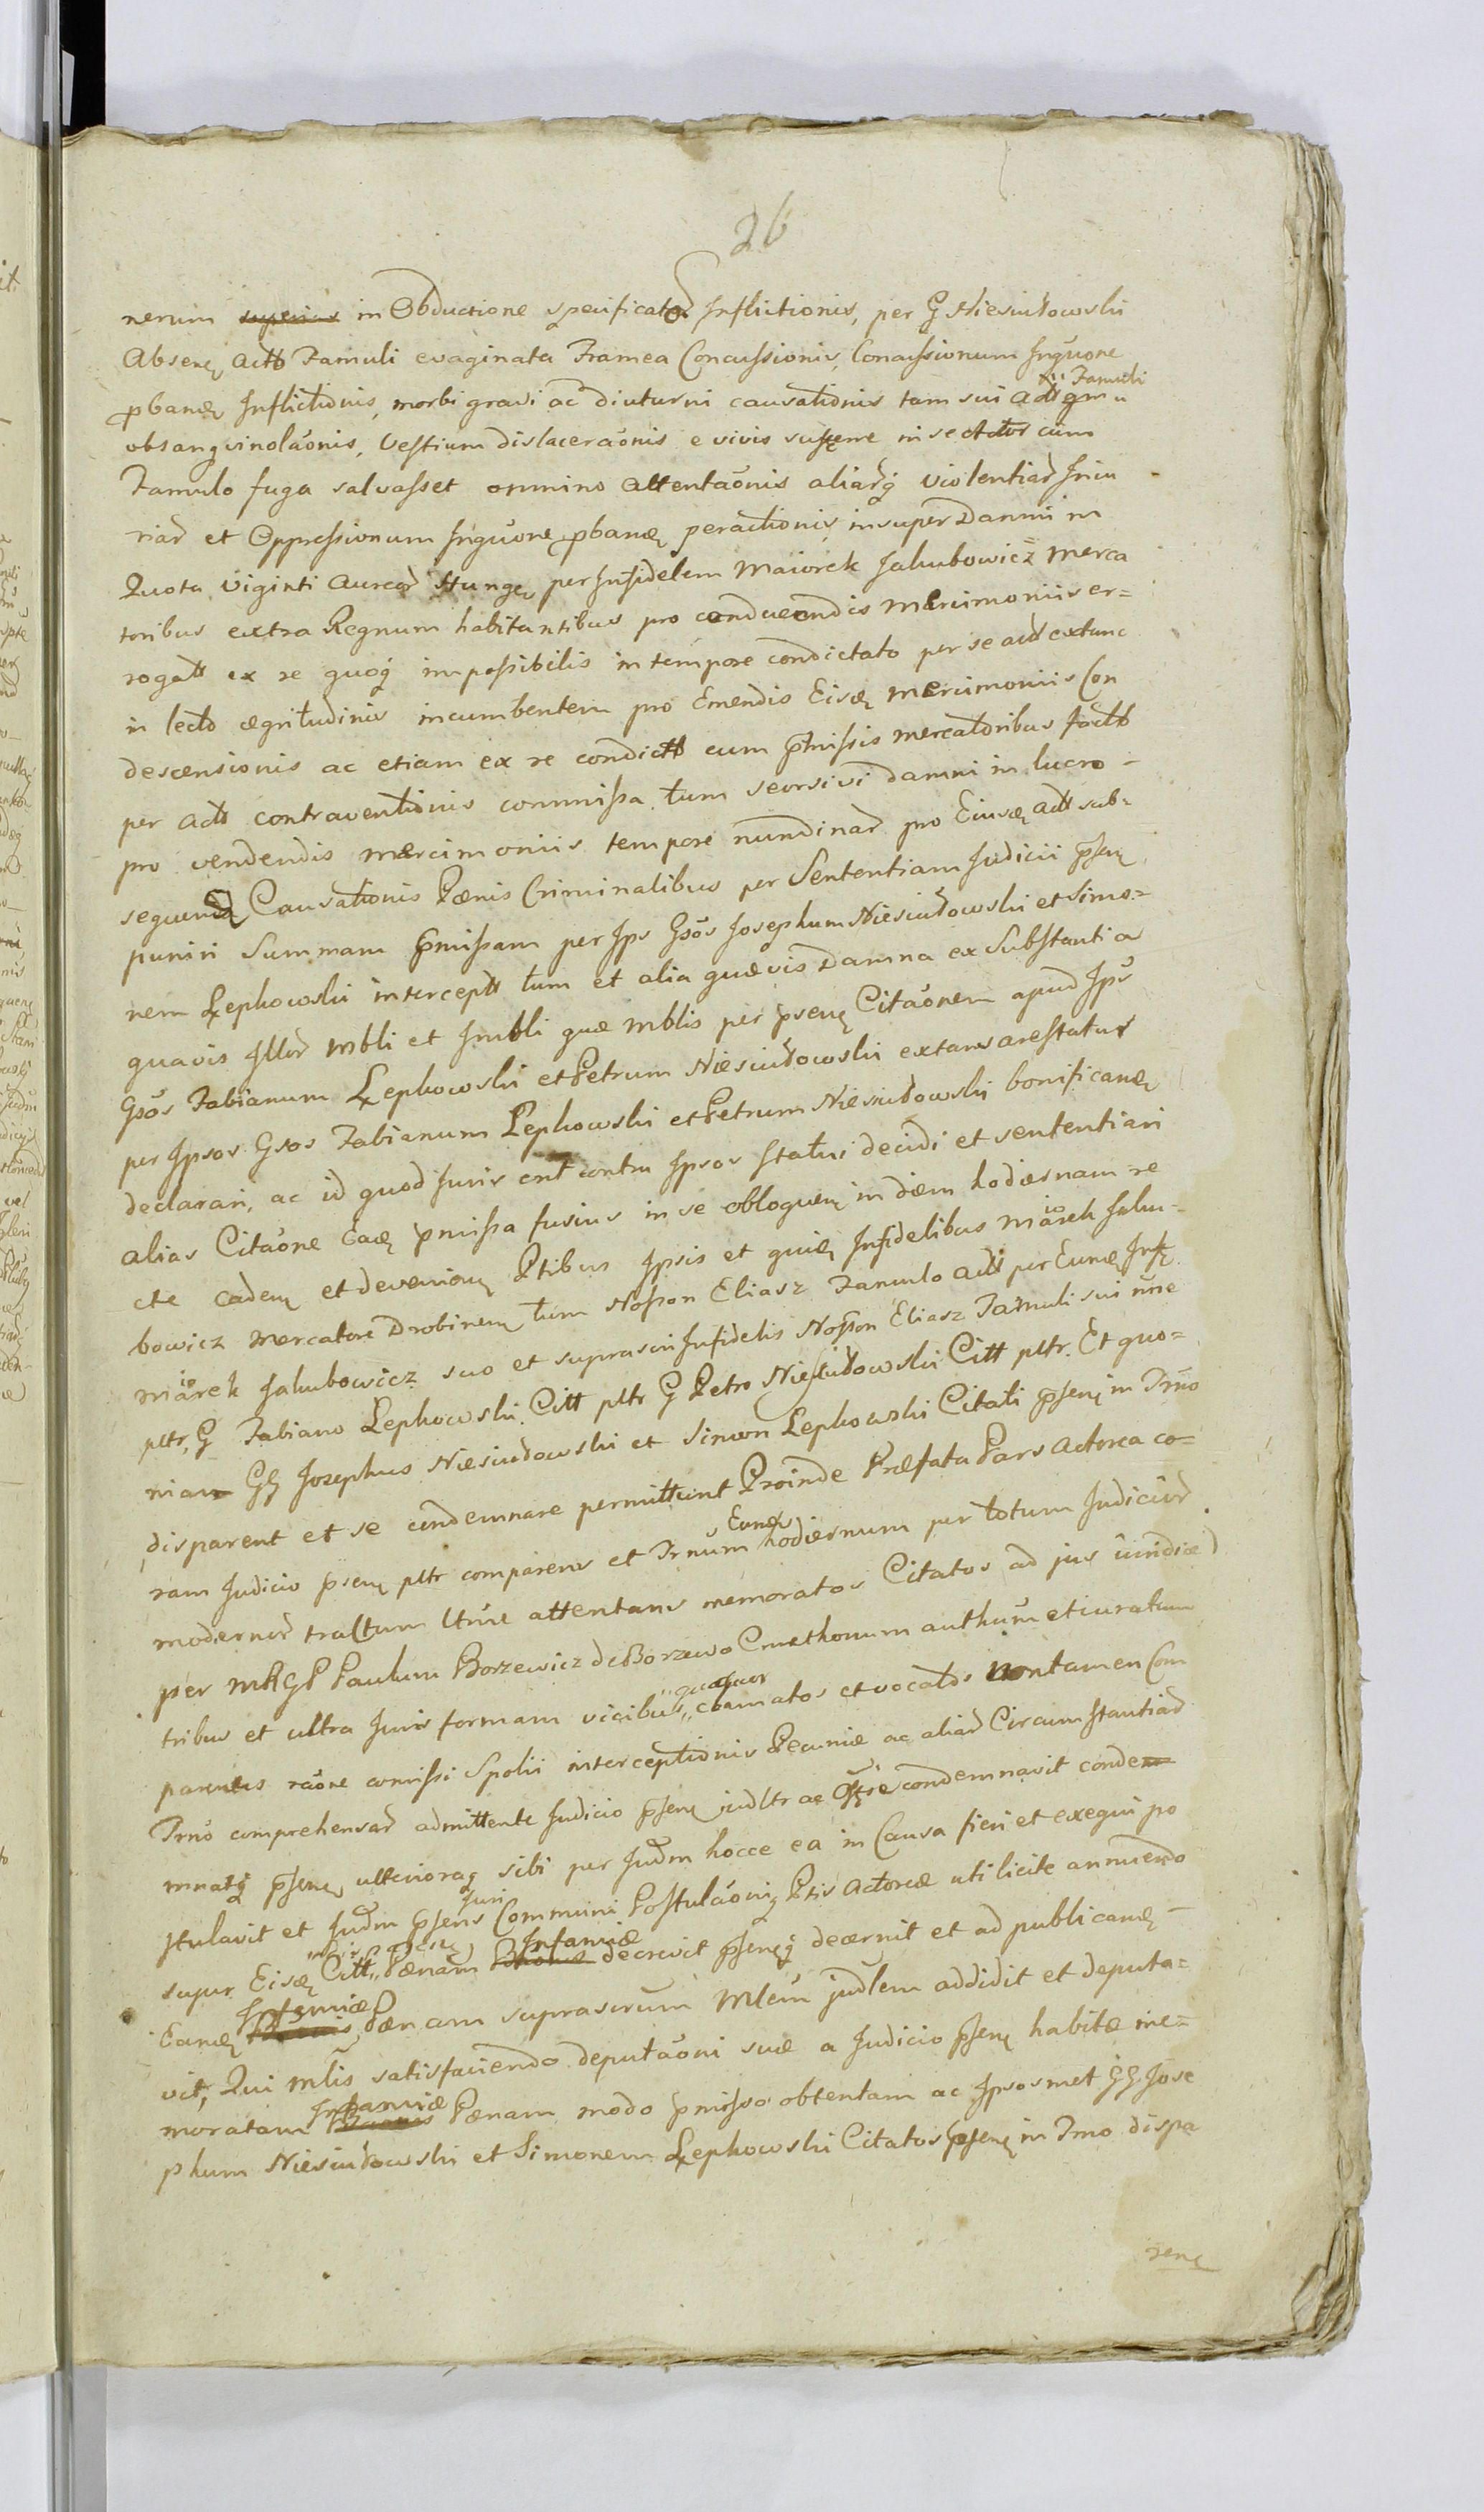 26
nerum superius in Obductione specificator Inflictionis, per G Niesiułowski
Absenę actō Famuli evaginata Framea Concussionis, Concussionum Inguone
pbanę Inflictionis, morbi gravi ac diuturni causationis tam sui Famuli
obsangvinolaōnis, Vestium dislaceraōnis e vivis cum
Famulo fuga salvasset omnino Attentaōnis aliarq violentiar Iniu
riar et Oppressionum Inguone pbanę peractionis, insuper Damni in
Quota Viginti Aureor Hungę per Infidelem Maiorek Jakubowicz Merca
toribus extra Regnum habitantibus pro conducendis Mercimoniis er=
rogatt ex re quoq impossibilis in tempore condictato per se actō extunc
in lecto ægritudinis incumbentem pro Emendis Eisdę Mercimoniis Con
descensionis ac etiam ex re condictō cum pmissis mercatoribus factō
per Actō contraventionis commissa tum seorsivi damni in lucro =
pro vendendis mercimoniis tempore nundinar pro Eiusdę Actō sub=
sequenę Causationis Pænis Criminalibus per Sententiam Judicii psenę
puniri Summam pmissam per Ips Gsos Josephum Niesiułowski et Simo=
nem Lępkowski intercepttt tum et alia quævis Damna ex Substantia
quavis Illor Mbli et Immbli quæ Mblis per psenę Citaōnem apud Ips
Gsos Fabianum Lępkowski et Petrum Niesiułowski extans arestatur
per Ipsos Gsos Fabianum Lepkowski et Petrum Niesiułowski bonificanę
declarari, ac id quod Juris ent contra Ipsos statui decidi et sententiari
alias Citaōne Eadę pmissa fusius in se obloquenę in diem hodiernam re
cte cadenę et devenienę Ptibus Ipsis et quidę Infidelibus Maiorek Jaku=
bowicz Mercatore Drobinenę tum Nosson Eliasz Famulo Actō per Eundę Infę
Maiorek Jakubowicz suo et suprascri Infidelis Nosson Eliasz Famuli sui nne
pltr, G Fabiano Lepkowski Citt pltr G Petro Niesiułowski Citt pltr. Et quo=
niam GG Josephus Niesiułowski et Simon Lepkowski Citati psenę in Trno
disparent et se condemnare permittunt Proinde Præfata Pars Actorea co=
ram Judicio psenę pltr comparens et Trnum Eundę hodiernum per totum Judicior
modernor tractum Utrue attentans memoratos Citatos ad jus iuridice
per MRGP Paulum Borzewicz de Borzewo Cmethonum authum et iuratum
tribus et ultra Juris formam vicibus quatuor clamatos et vocatos Non tamen Com
parentes raōne comissi Spolii interceptionis Pecuniæ ac aliar Circumstantiar
Trno comprehensar admittente Judicio psenę judltr ac condemnavit conde
mnatq psenę ulterioraq sibi per Judm hocce ea in Causa fieri et exequi po
stulavit et Judm psens Juri Communi Postulaōniq Ptis Actoreæ uti licite annuendo
super Eisdę Citt Pænam Infamiæ decrevit psenęq decernit et ad publicandę
Eandę Infamiæ Pænam suprascrum Mlem judlem addidit et deputa=
vit, Qui Mlis satisfaciendo deputaōni suæ a Judicio psenę habitæ me=
moratam Infamiæ Pænam modo pmisso obtentam ac Ipsosmet GG Jose
phum Niesiułowski et Simonem Lępkowski Citatos psenę in Trno dispa
renę